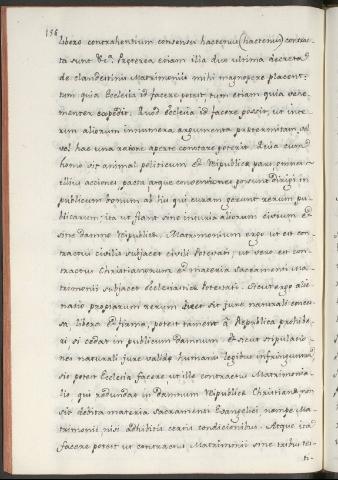 156
libero contrahentium consensu hactenus (hactenus) contrac-
ta sunt &c.ª Præterea etiam illa duo ultima decreta
de clandestinis Matrimoniis mihi magnopere placent:
tum quia Ecclesia id facere potest, tum etiam quia vehe-
menter expedit. Quod Ecclesia id facere possit, ut inte-
rim aliorum innumera argumenta prætermittam, vel
vel hac una ratione aperte constare poterit. Quia cum
homo sit animal politicum et Reipublicæ pars, omnes
illius actiones, pacta atque conventiones possunt dirigi in
publicum bonum ab his qui curam gerunt rerum pu-
blicarum; ita ut fiant sine iniuria aliorum civium et
sine damno Reipublicæ. Matrimonium ergo ut est con-
tractus civilis subjacet civili Potestati; ut vero est con-
tractus Christianorum et materia Sacramenti Ma-
trimonii subjacet Ecclesiasticæ Potestati. Sicut ergo alie-
natio propriarum rerum licet sit jure naturali conces-
sa, libera et firma, potest tamen à Republica prohibe-
ri, si cedat in publicum damnum et sicut stipulatio-
nes naturali jure validæ humanis legibus infringuntur
sic potest Ecclesia facere ut ille contractus Matrimonia-
lis qui redundat in damnum Reipublicæ Christianæ, non
sit debita materia Sacramenti Evangelici nempe Ma-
trimonii nisi adhibitis certis condicionibus. Atque ita
facere potest ut contractus Matrimonii sine tribus tes-
ti-